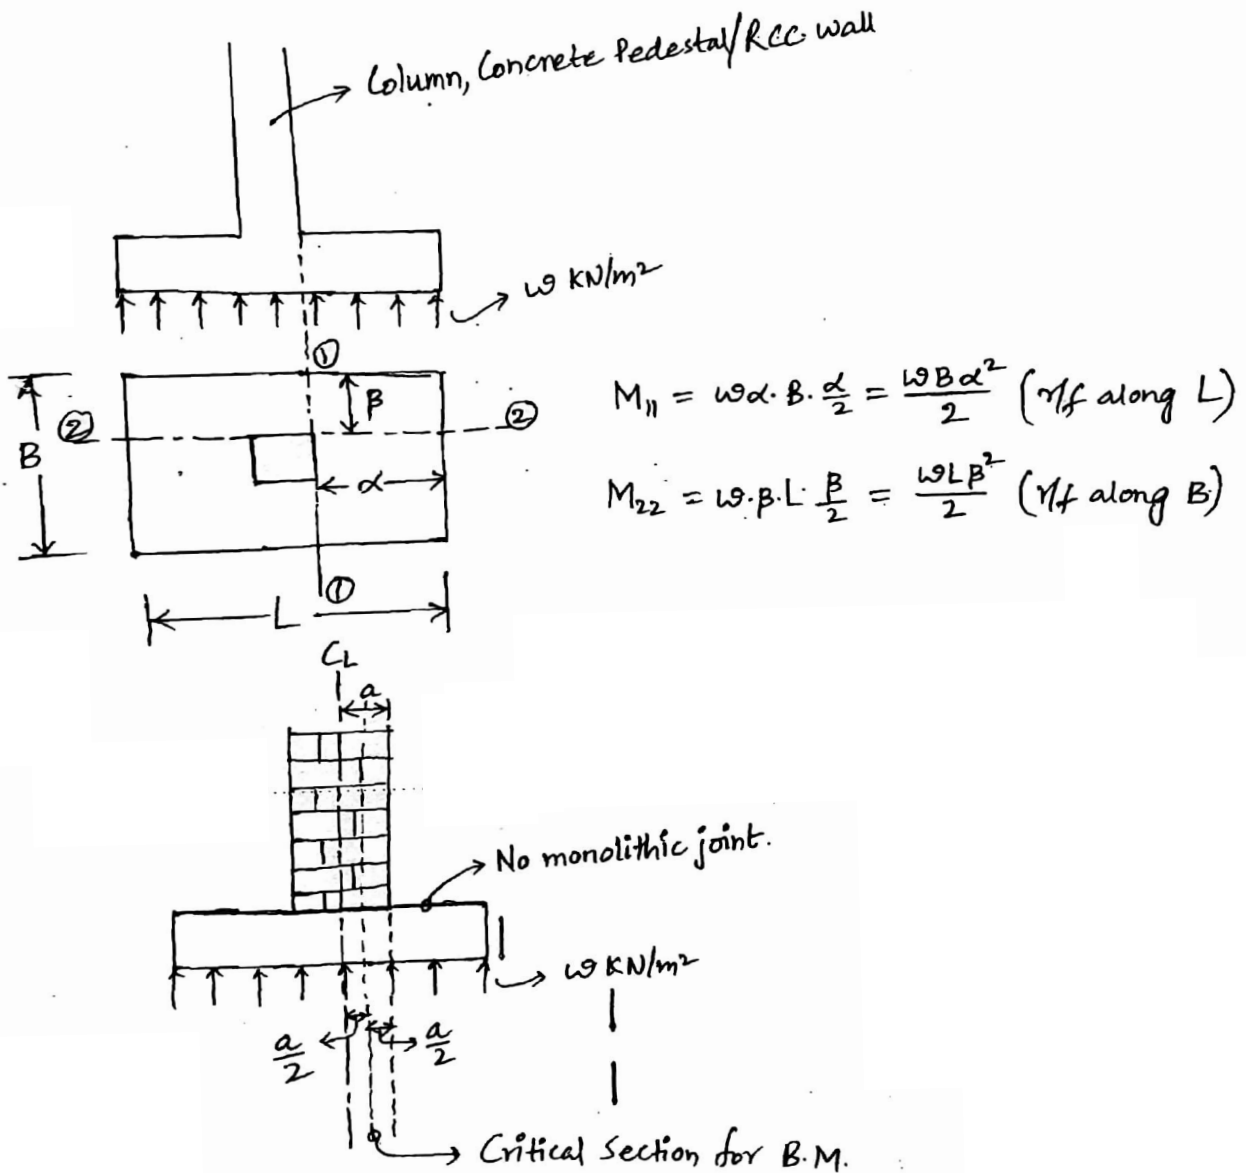 Column, Concrete Pedestal/RCC. wall
ω KN/m²
①
β
②
②
B
α
①
L
M₁₁ = ωα. B. α/2 = ωBα²/2 (r/f along L)
M₂₂ = ω.β.L. β/2 = ωLβ²/2 (r/f along B)
CL
a
No monolithic joint.
ω KN/m²
a/2
a/2
Critical Section for B.M.